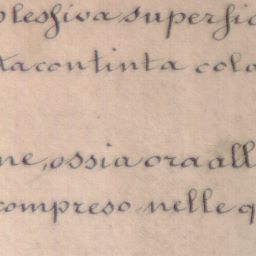 plessiva superfic
ta continta colo
ne, ossia ora all
compreso nelle q